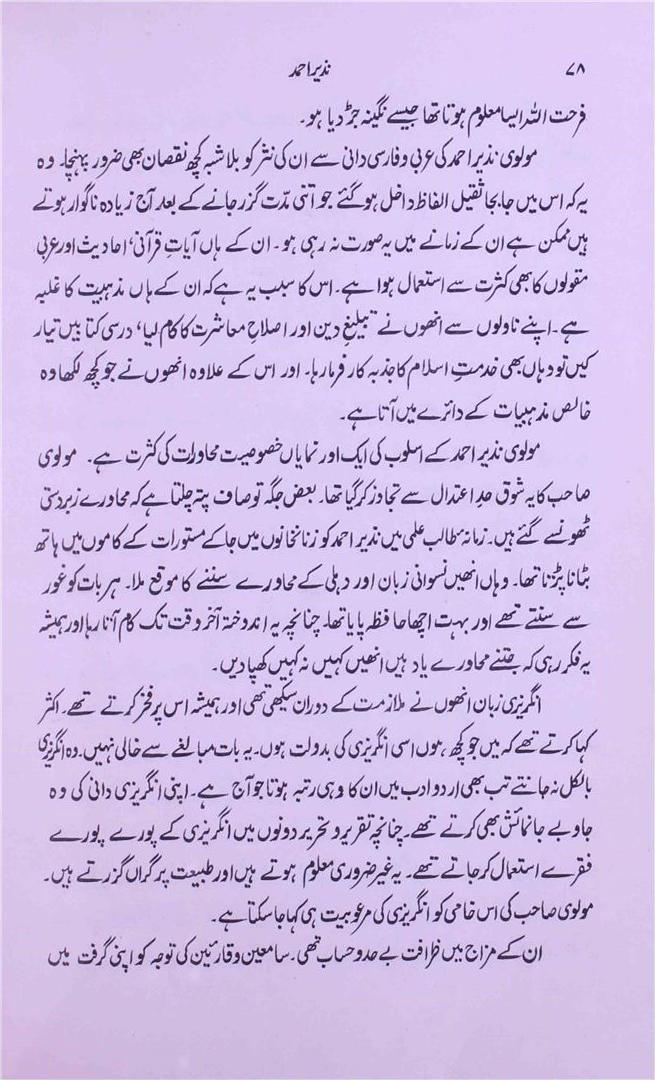 ۷۸ نذیر احمد
فرحت اللہ ایسا معلوم ہوتا تھا جیسے نگینہ جڑ دیا ہو۔
مولوی نذیر احمد کی عربی و فارسی دانی سے ان کی نثر کو بلاشبہ کچھ نقصان بھی ضرور پہنچا۔ وہ
یہ کہ اس میں جا بجا ثقیل الفاظ داخل ہو گئے جو اتنی مدّت گزر جانے کے بعد آج زیادہ ناگوار ہوتے
ہیں ممکن ہے ان کے زمانے میں یہ صورت نہ رہی ہو۔ ان کے ہاں آیاتِ قرآنی، احادیث اور عربی
مقولوں کا بھی کثرت سے استعمال ہوا ہے۔ اس کا سبب یہ ہے کہ ان کے ہاں مذہبیت کا غلبہ
ہے۔ اپنے ناولوں سے انھوں نے تبلیغِ دین اور اصلاحِ معاشرت کا کام لیا، درسی کتابیں تیار
کیں تو وہاں بھی خدمتِ اسلام کا جذبہ کار فرما رہا۔ اور اس کے علاوہ انھوں نے جو کچھ لکھا وہ
خالص مذہبیات کے دائرے میں آتا ہے۔
مولوی نذیر احمد کے اسلوب کی ایک اور نمایاں خصوصیت محاورات کی کثرت ہے۔ مولوی
صاحب کا یہ شوق حدِ اعتدال سے تجاوز کر گیا تھا۔ بعض جگہ تو صاف پتہ چلتا ہے کہ محاورے زبردستی
ٹھونسے گئے ہیں۔ زمانۂ طالب علمی میں نذیر احمد کو زنانخانوں میں جا کے مستورات کے کاموں میں ہاتھ
بٹانا پڑتا تھا۔ وہاں انھیں نسوانی زبان اور دہلی کے محاورے سننے کا موقع ملا۔ ہر بات کو غور
سے سنتے تھے اور بہت اچھا حافظہ پایا تھا۔ چنانچہ یہ اندوختہ آخر وقت تک کام آتا رہا اور ہمیشہ
یہ فکر رہی کہ جتنے محاورے یاد ہیں انھیں کہیں نہ کہیں کھپا دیں۔
انگریزی زبان انھوں نے ملازمت کے دوران سیکھی تھی اور ہمیشہ اس پر فخر کرتے تھے۔ اکثر
کہا کرتے تھے کہ میں جو کچھ ہوں اسی انگریزی کی بدولت ہوں۔ یہ بات مبالغے سے خالی نہیں۔ وہ انگریزی
بالکل نہ جانتے تب بھی اردو ادب میں ان کا وہی رتبہ ہوتا جو آج ہے۔ اپنی انگریزی دانی کی وہ
جا و بے جا نمائش بھی کرتے تھے۔ چنانچہ تقریر و تحریر دونوں میں انگریزی کے پورے پورے
فقرے استعمال کر جاتے تھے۔ یہ غیر ضروری معلوم ہوتے ہیں اور طبیعت پر گراں گزرتے ہیں۔
مولوی صاحب کی اس خامی کو انگریزی کی مرعوبیت ہی کہا جا سکتا ہے۔
ان کے مزاج میں ظرافت بے حد و حساب تھی۔ سامعین و قارئین کی توجہ کو اپنی گرفت میں